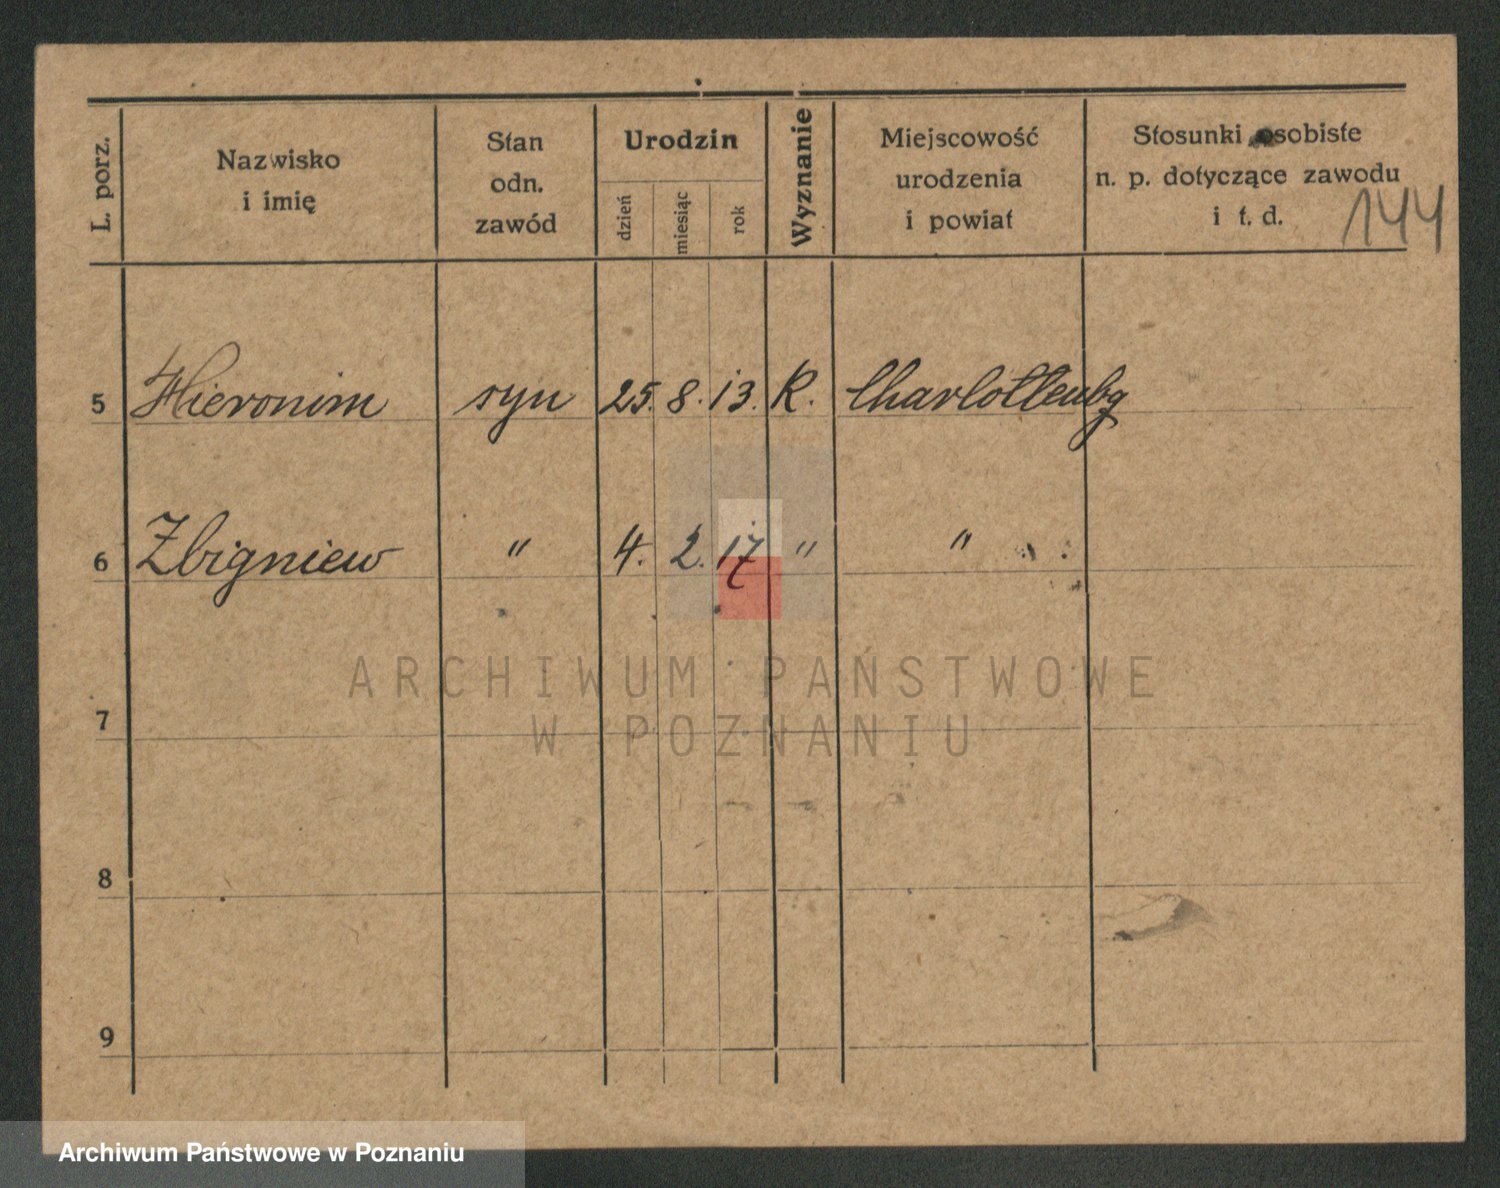 L. porz.
Nazwisko
i imię
Stan
odn.
zawód
Urodzin
dzień
miesiąc
rok
Wyznanie
Miejscowość
urodzenia
i powiat
Stosunki osobiste
n. p. dotyczące zawodu
i t. d.
144
5 Hieronim syn 25. 8. 13. K. Charlottenbg
6 Zbigniew " 4. 2. 17 " "
7
8
9
ARCHIWUM PAŃSTWOWE
W POZNANIU
Archiwum Państwowe w Poznaniu